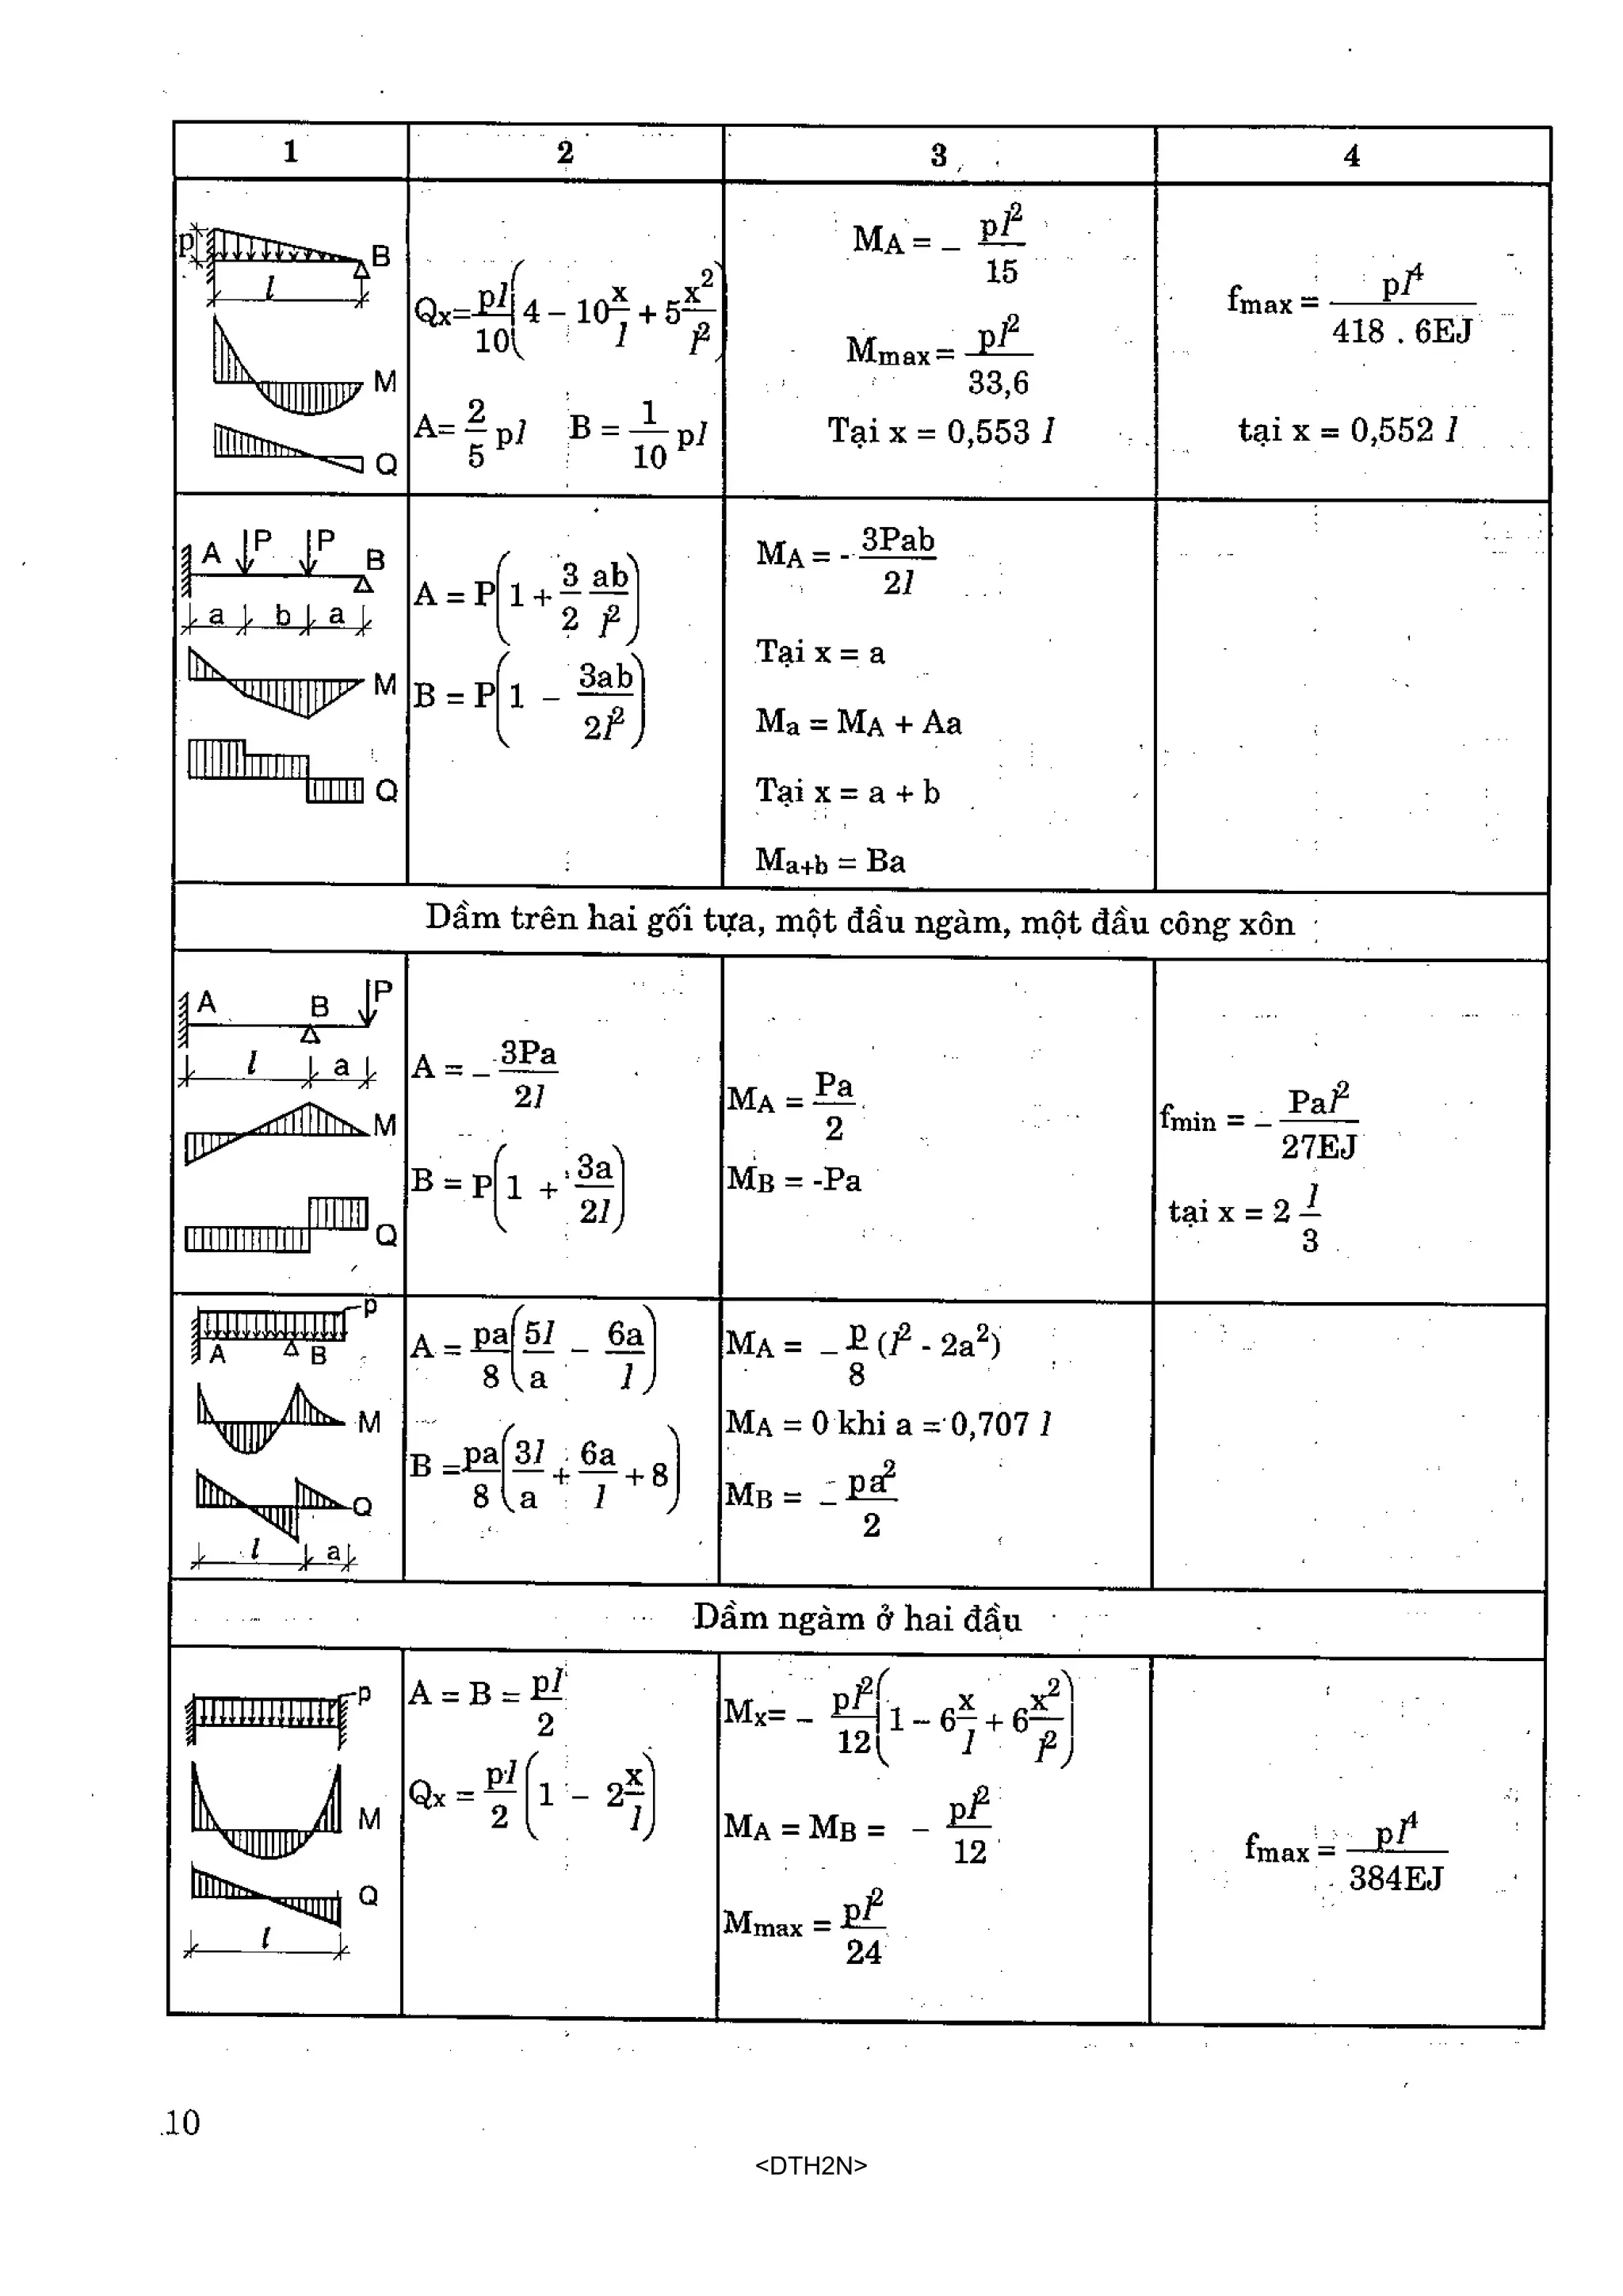 1 2 3 4
p B
l
M
Q
Qx = pl/10 (4 - 10 x/l + 5 x²/l²)
A = 2/5 pl B = 1/10 pl
MA = - pl²/15
Mmax = pl²/33,6
Tại x = 0,553 l
fmax = pl⁴/418 . 6EJ
tại x = 0,552 l
A P P B
a b a
M
Q
A = P(1 + 3/2 ab/l²)
B = P(1 - 3ab/2l²)
MA = - 3Pab/2l
Tại x = a
Ma = MA + Aa
Tại x = a + b
Ma+b = Ba
Dầm trên hai gối tựa, một đầu ngàm, một đầu công xôn
A B P
l a
M
Q
A = - 3Pa/2l
B = P(1 + 3a/2l)
MA = Pa/2
MB = -Pa
fmin = - Pal²/27EJ
tại x = 2 l/3
p
A B
M
Q
l a
A = pa/8 (5l/a - 6a/l)
B = pa/8 (3l/a + 6a/l + 8)
MA = - p/8 (l² - 2a²)
MA = 0 khi a = 0,707 l
MB = - pa²/2
Dầm ngàm ở hai đầu
p
M
Q
l
A = B = pl/2
Qx = pl/2 (1 - 2 x/l)
Mx = - pl²/12 (1 - 6 x/l + 6 x²/l²)
MA = MB = - pl²/12
Mmax = pl²/24
fmax = pl⁴/384EJ
10
<DTH2N>